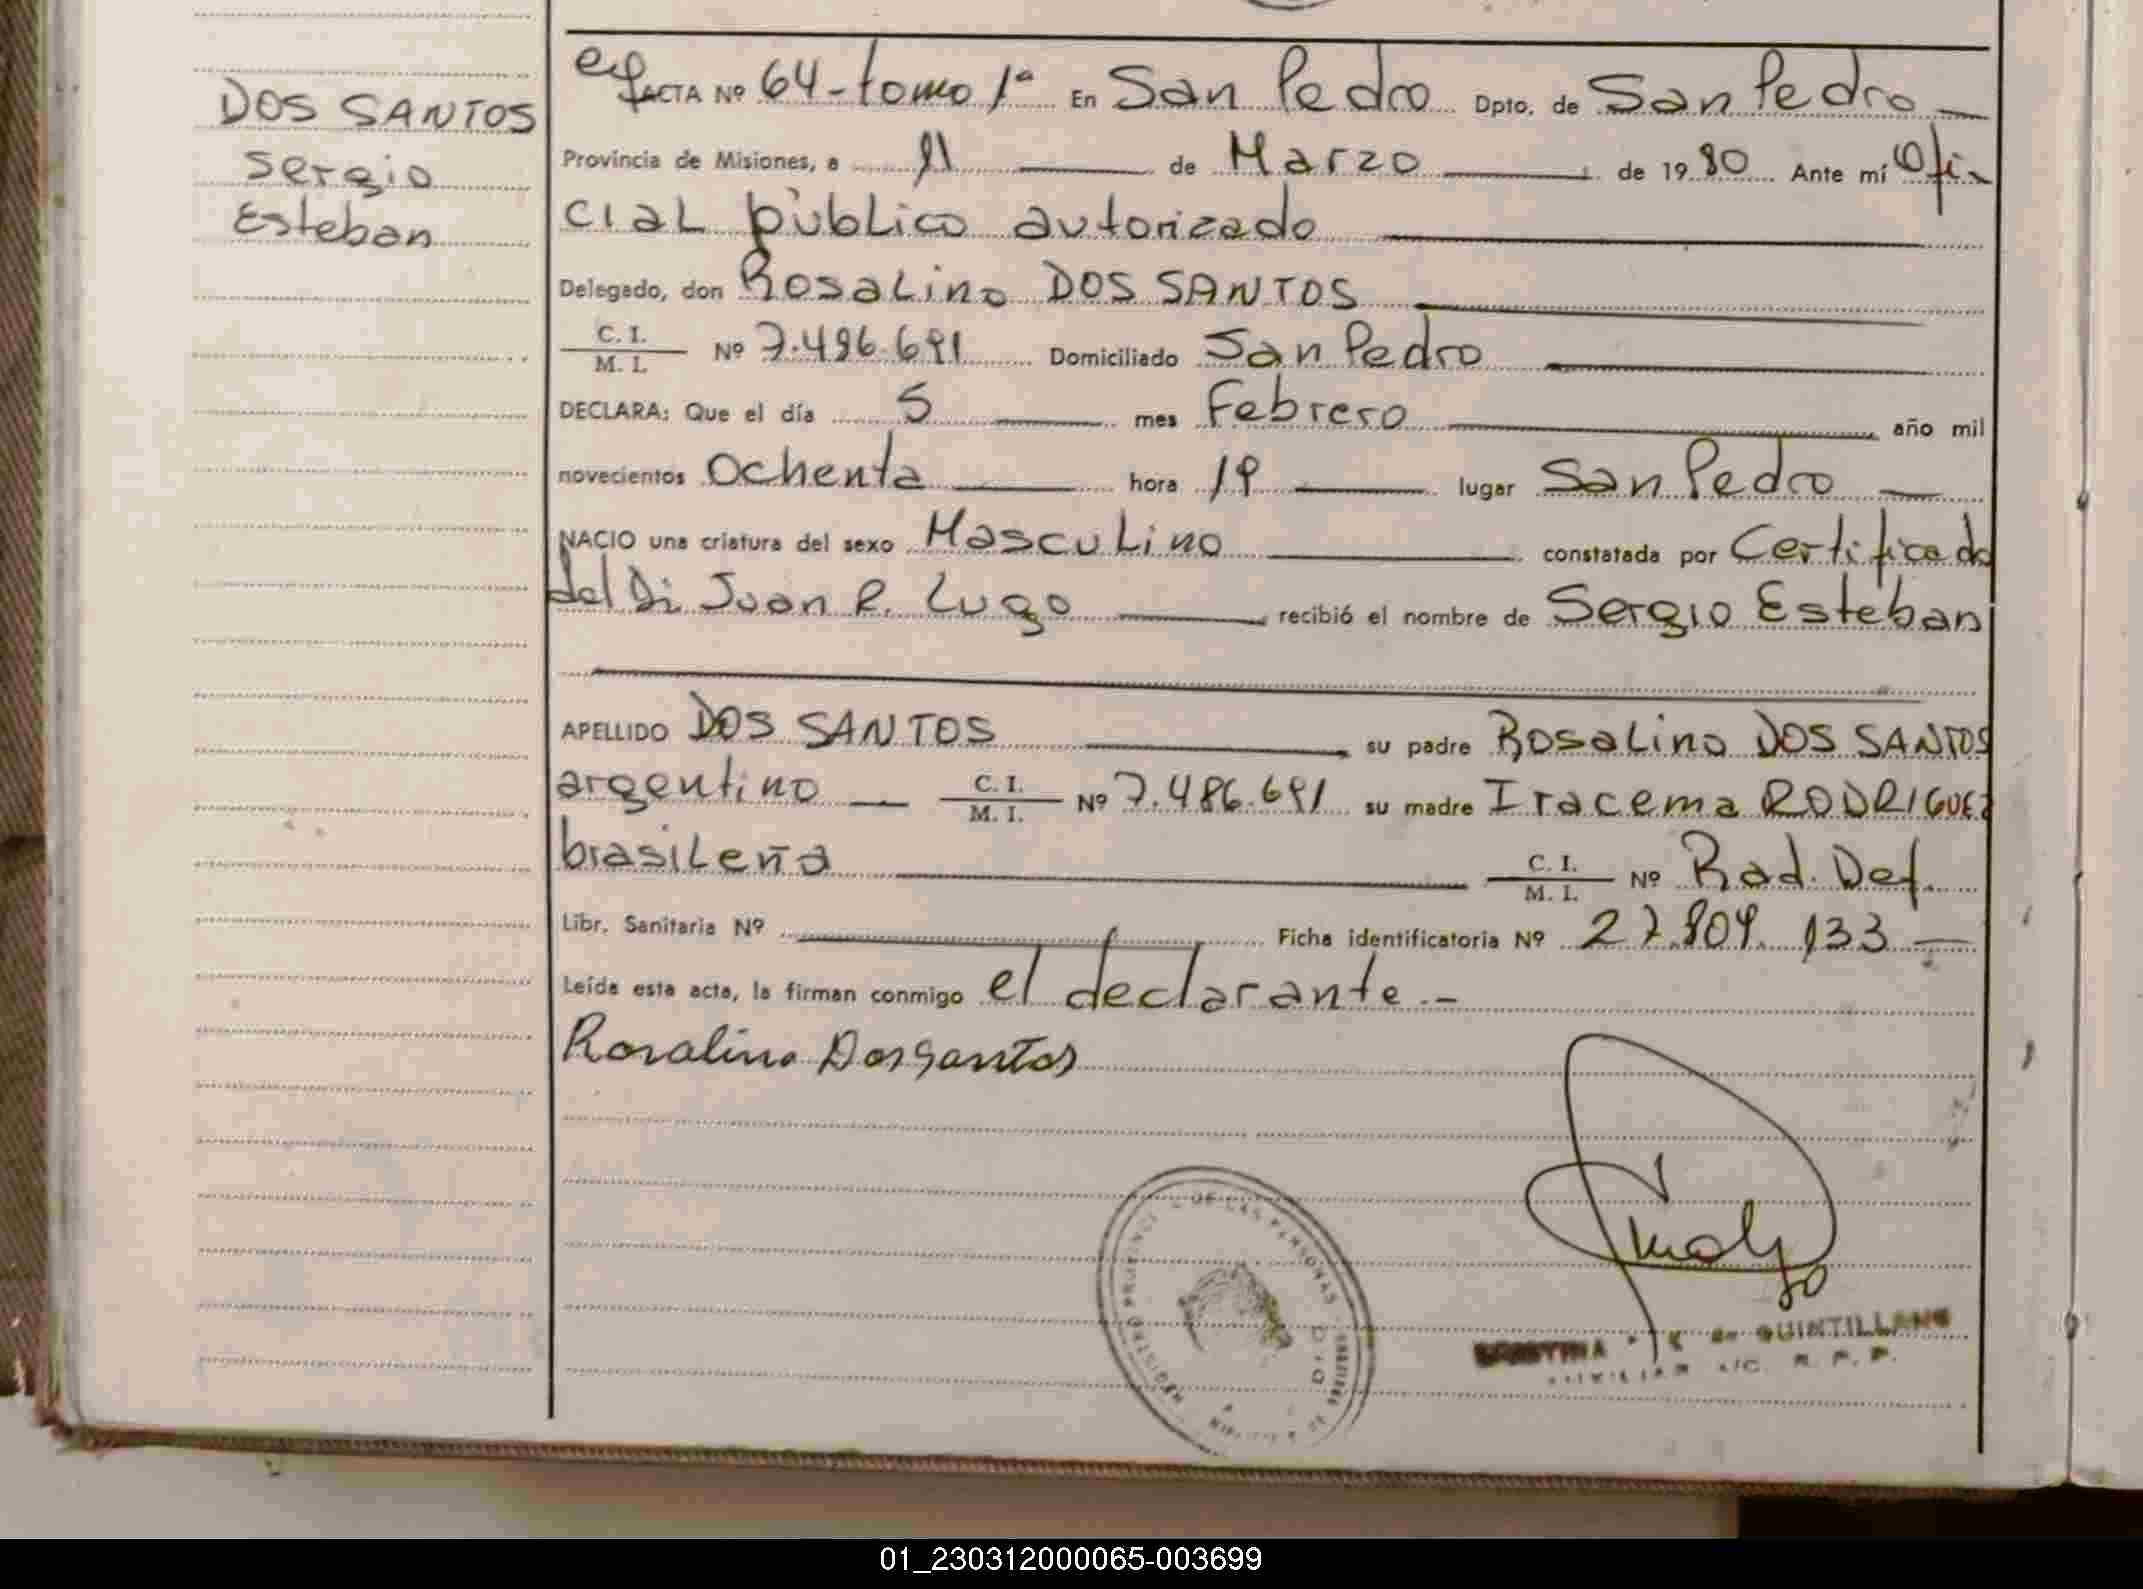 DOS SANTOS
Sergio
Esteban
ACTA Nº 64-tomo 1º En San Pedro Dpto. de San Pedro
Provincia de Misiones, a 11 de Marzo de 1980 Ante mí Ofi-
cial público autorizado
Delegado, don Rosalino DOS SANTOS
C. I.
M. I. Nº 7.486.691 Domiciliado San Pedro
DECLARA: Que el día 5 mes Febrero año mil
novecientos Ochenta hora 19 lugar San Pedro
NACIO una criatura del sexo Masculino constatada por Certificado
del Dr Juan R. Lugo recibió el nombre de Sergio Esteban
APELLIDO DOS SANTOS su padre Rosalino DOS SANTOS
argentino C. I.
M. I. Nº 7.486.691 su madre Iracema RODRIGUEZ
brasileña C. I.
M. I. Nº Rad. Def.
Libr. Sanitaria Nº Ficha identificatoria Nº 27.809.133
Leída esta acta, la firman conmigo el declarante.-
Rosalino Dos Santos
DE LAS PERSONAS
QUINTILLANO
R. P. P.
01_230312000065-003699